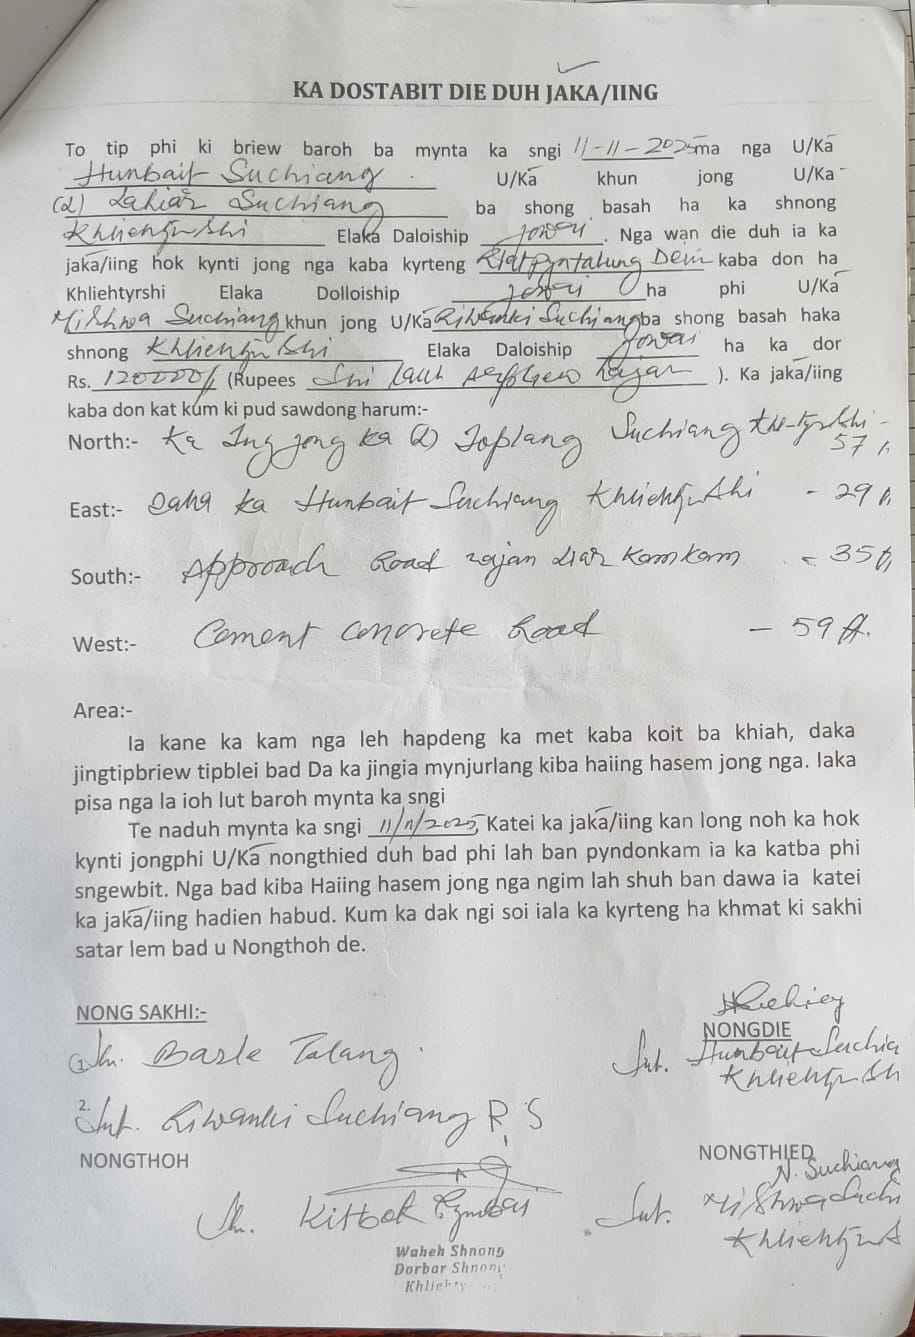 KA DOSTABIT DIE DUH JAKA/IING
To tip phi ki briew baroh ba mynta ka sngi 11-11-2025 ma nga U/Ka
Hunbait Suchiang U/Ka khun jong U/Ka
(L) Lakiar Suchiang ba shong basah ha ka shnong
Khliehtyrshi Elaka Daloiship Jowai. Nga wan die duh ia ka
jaka/iing hok kynti jong nga kaba kyrteng Pyntalung Dein kaba don ha
Khliehtyrshi Elaka Dolloiship Jowai ha phi U/Ka
Mishwa Suchiang khun jong U/Ka Riwanki Suchiang ba shong basah haka
shnong Khliehtyrshi Elaka Daloiship Jowai ha ka dor
Rs. 120000/- (Rupees lauh hajar ). Ka jaka/iing
kaba don kat kum ki pud sawdong harum:-
North:- Ka Ing jong ka (L) Joplang Suchiang Khl-tyrshi - 57
East:- ka Hunbait Suchiang Khliehtyrshi - 29
South:- Approach Road Kamkam - 35
West:- Cement Concrete Road - 59 ft.
Area:-
Ia kane ka kam nga leh hapdeng ka met kaba koit ba khiah, daka
jingtipbriew tipblei bad Da ka jingia mynjurlang kiba haiing hasem jong nga. Iaka
pisa nga la ioh lut baroh mynta ka sngi
Te naduh mynta ka sngi 11/11/2025, Katei ka jaka/iing kan long noh ka hok
kynti jongphi U/Ka nongthied duh bad phi lah ban pyndonkam ia ka katba phi
sngewbit. Nga bad kiba Haiing hasem jong nga ngim lah shuh ban dawa ia katei
ka jaka/iing hadien habud. Kum ka dak ngi soi iala ka kyrteng ha khmat ki sakhi
satar lem bad u Nongthoh de.
NONG SAKHI:-
NONGDIE
1. Sh. Basle Talang.
Smt. Hunbait Suchia
Khliehtyrsh
2. Smt. Riwanki Suchiang R.S
NONGTHOH
NONGTHIED
N. Suchiang
Sh. Kitbok
Smt. Mishwa Suchi
Waheh Shnong
Dorbar Shnong